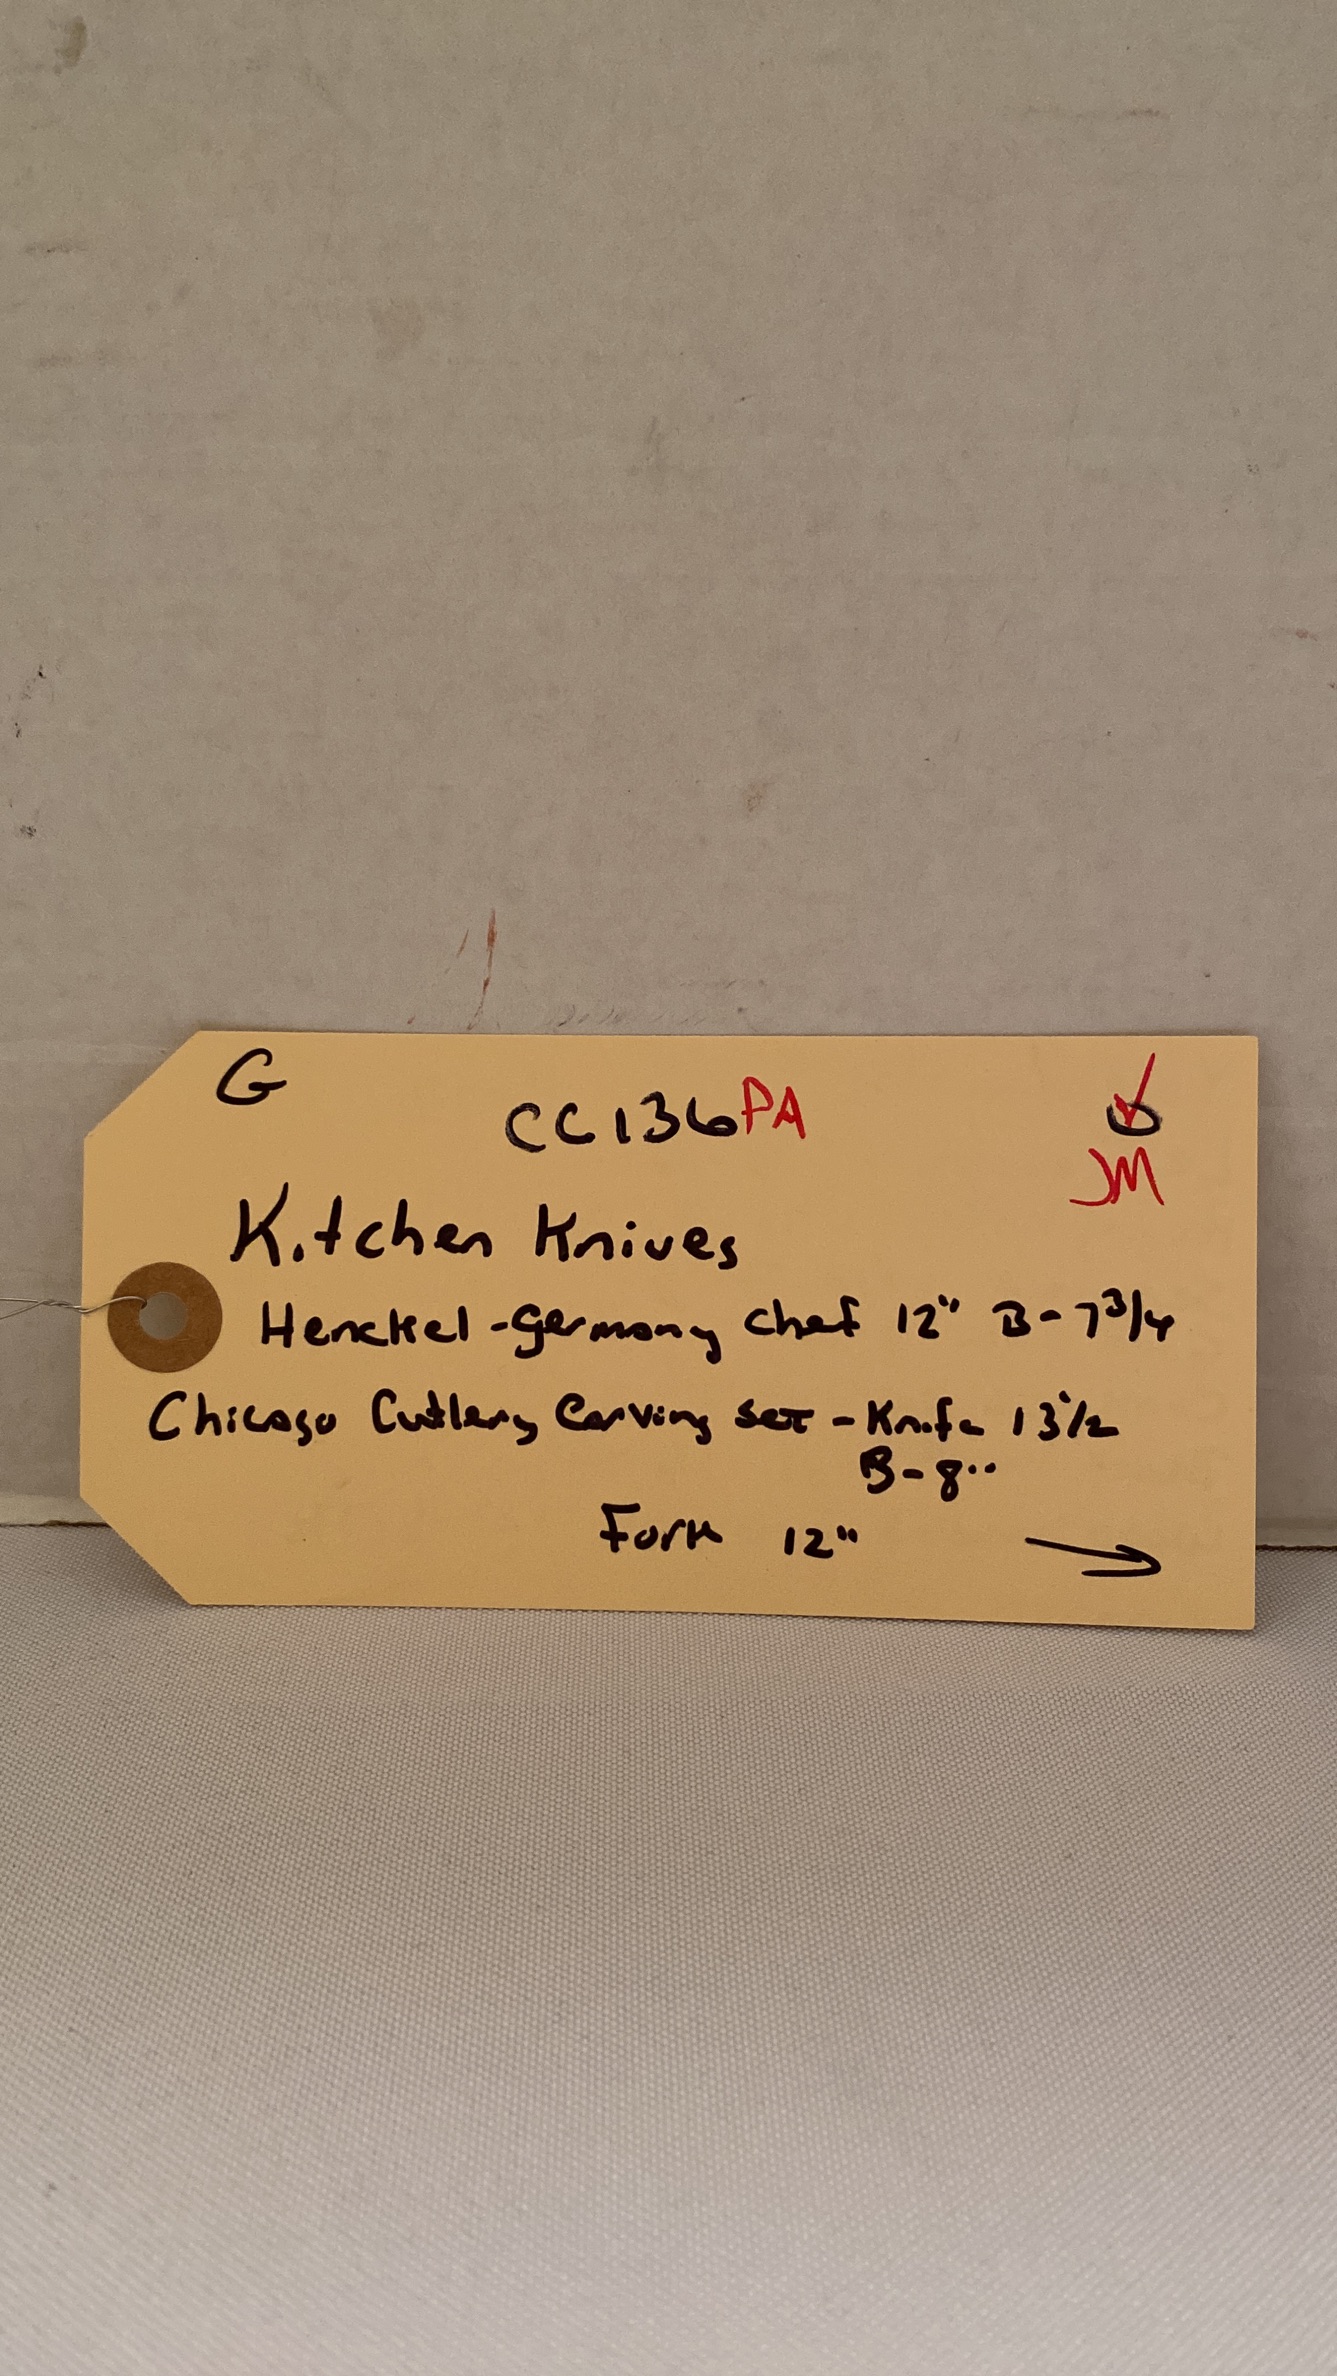 G
CC136PA
JM
Kitchen Knives
Henckel - Germany Chef 12" B - 7 3/4
Chicago Cutlery Carving Set - Knife 13 1/2
B - 8"
Fork 12"